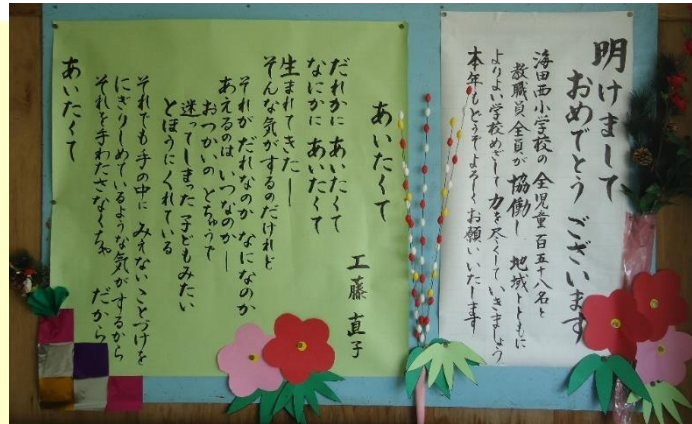 明けまして
おめでとう ございます
海田西小学校の 全児童 百五十八名と
教職員 全員が 協働し 地域とともに
よりよい学校めざして 力を尽くしていきましょう
本年もどうぞよろしくお願いいたします
あいたくて
工藤 直子
だれかに あいたくて
なにかに あいたくて
生まれてきた—
そんな気がするのだけれど
それが だれなのか なになのか
あえるのは いつなのか—
おつかいの とちゅうで
迷ってしまった 子どもみたい
とほうにくれている
それでも 手の中に みえないことづけを
にぎりしめているような気がするから
それを手わたさなくちゃ だから
あいたくて